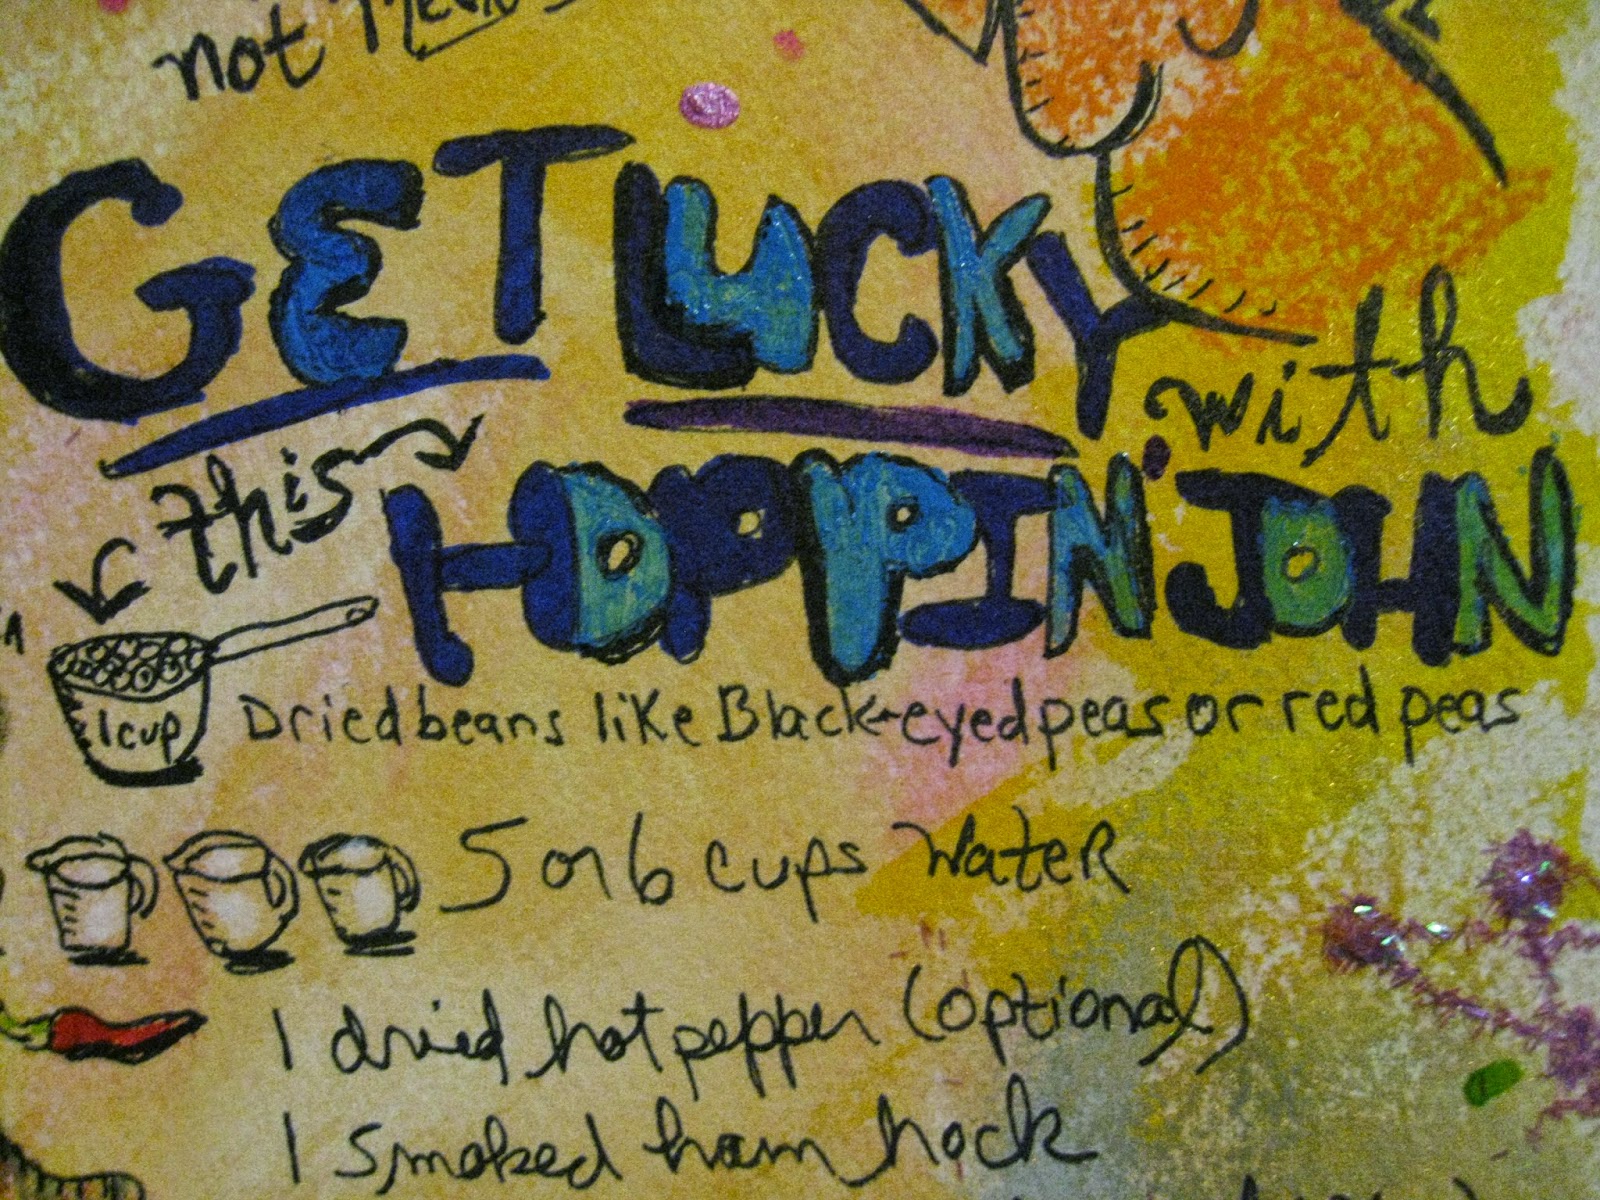 not
GET LUCKY with
this HOPPIN' JOHN
1 cup Dried beans like Black-eyed peas or red peas
5 or 6 cups water
1 dried hot pepper (optional)
1 smoked ham hock